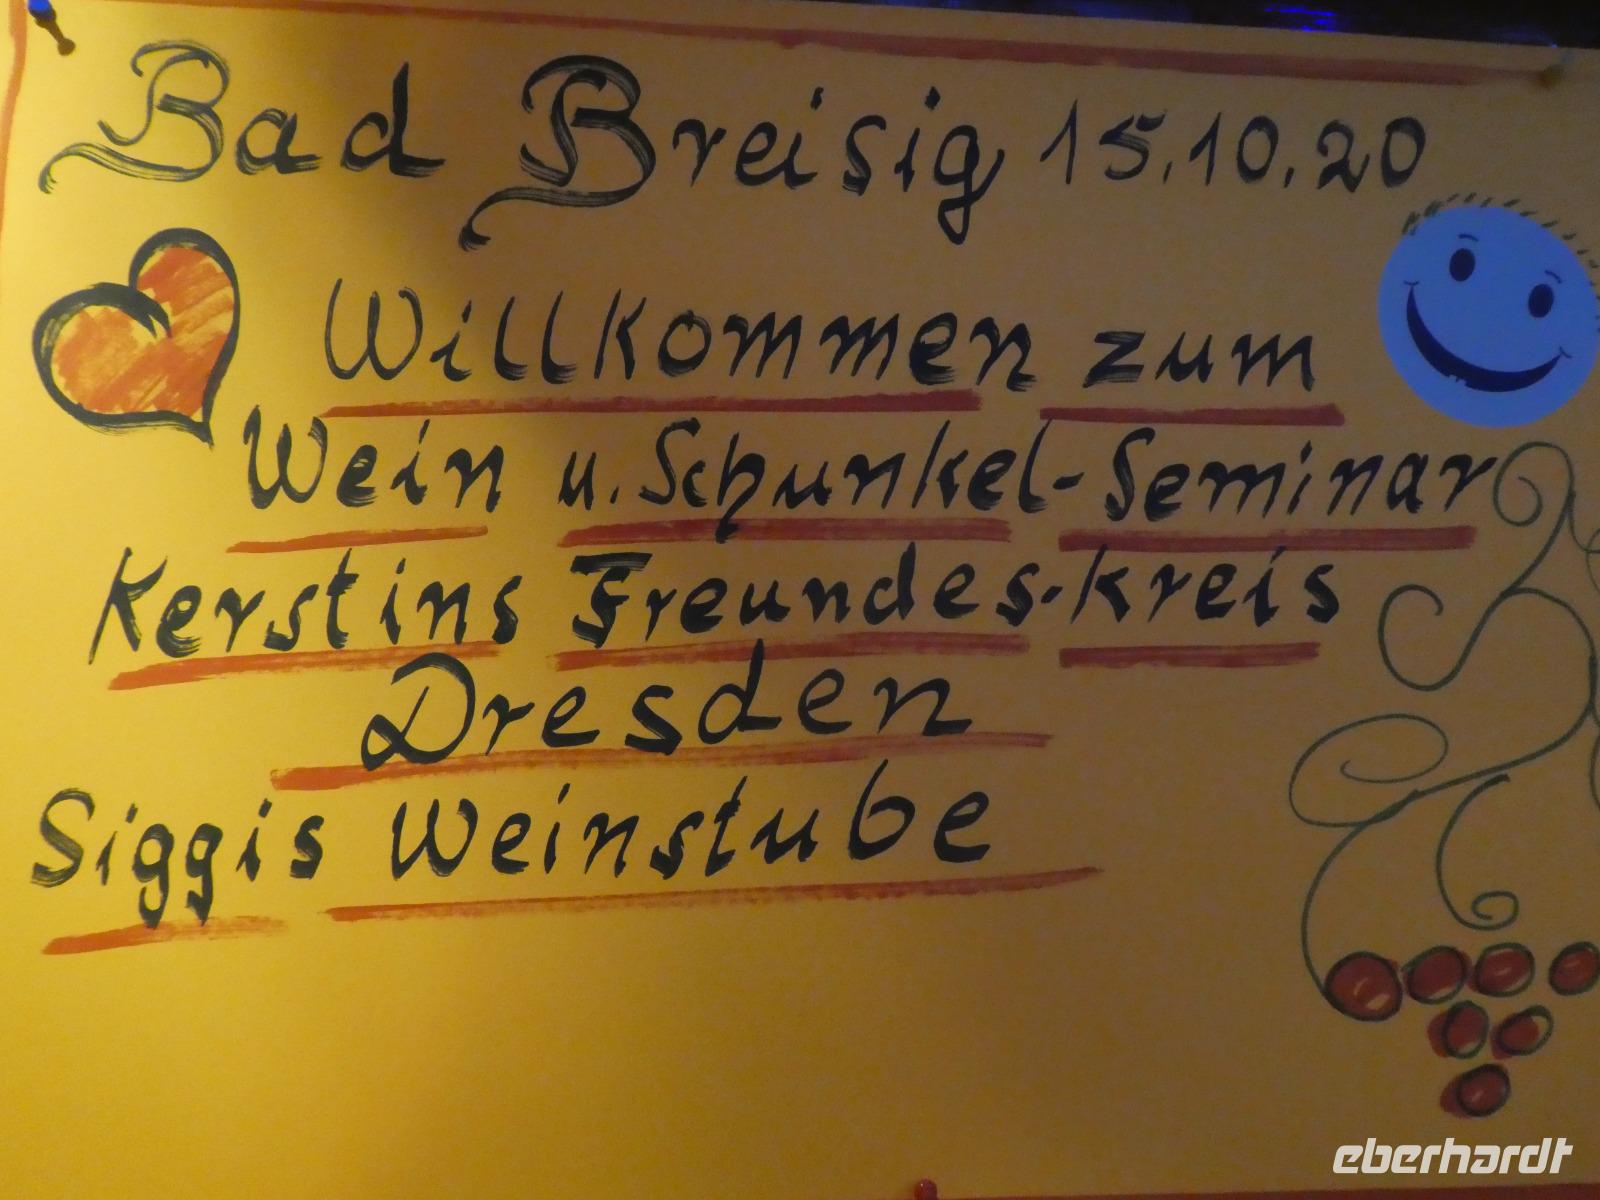 Bad Breisig 15.10.20
Willkommen zum
Wein u. Schunkel-Seminar
Kerstins Freundes-kreis
Dresden
Siggis Weinstube
eberhardt